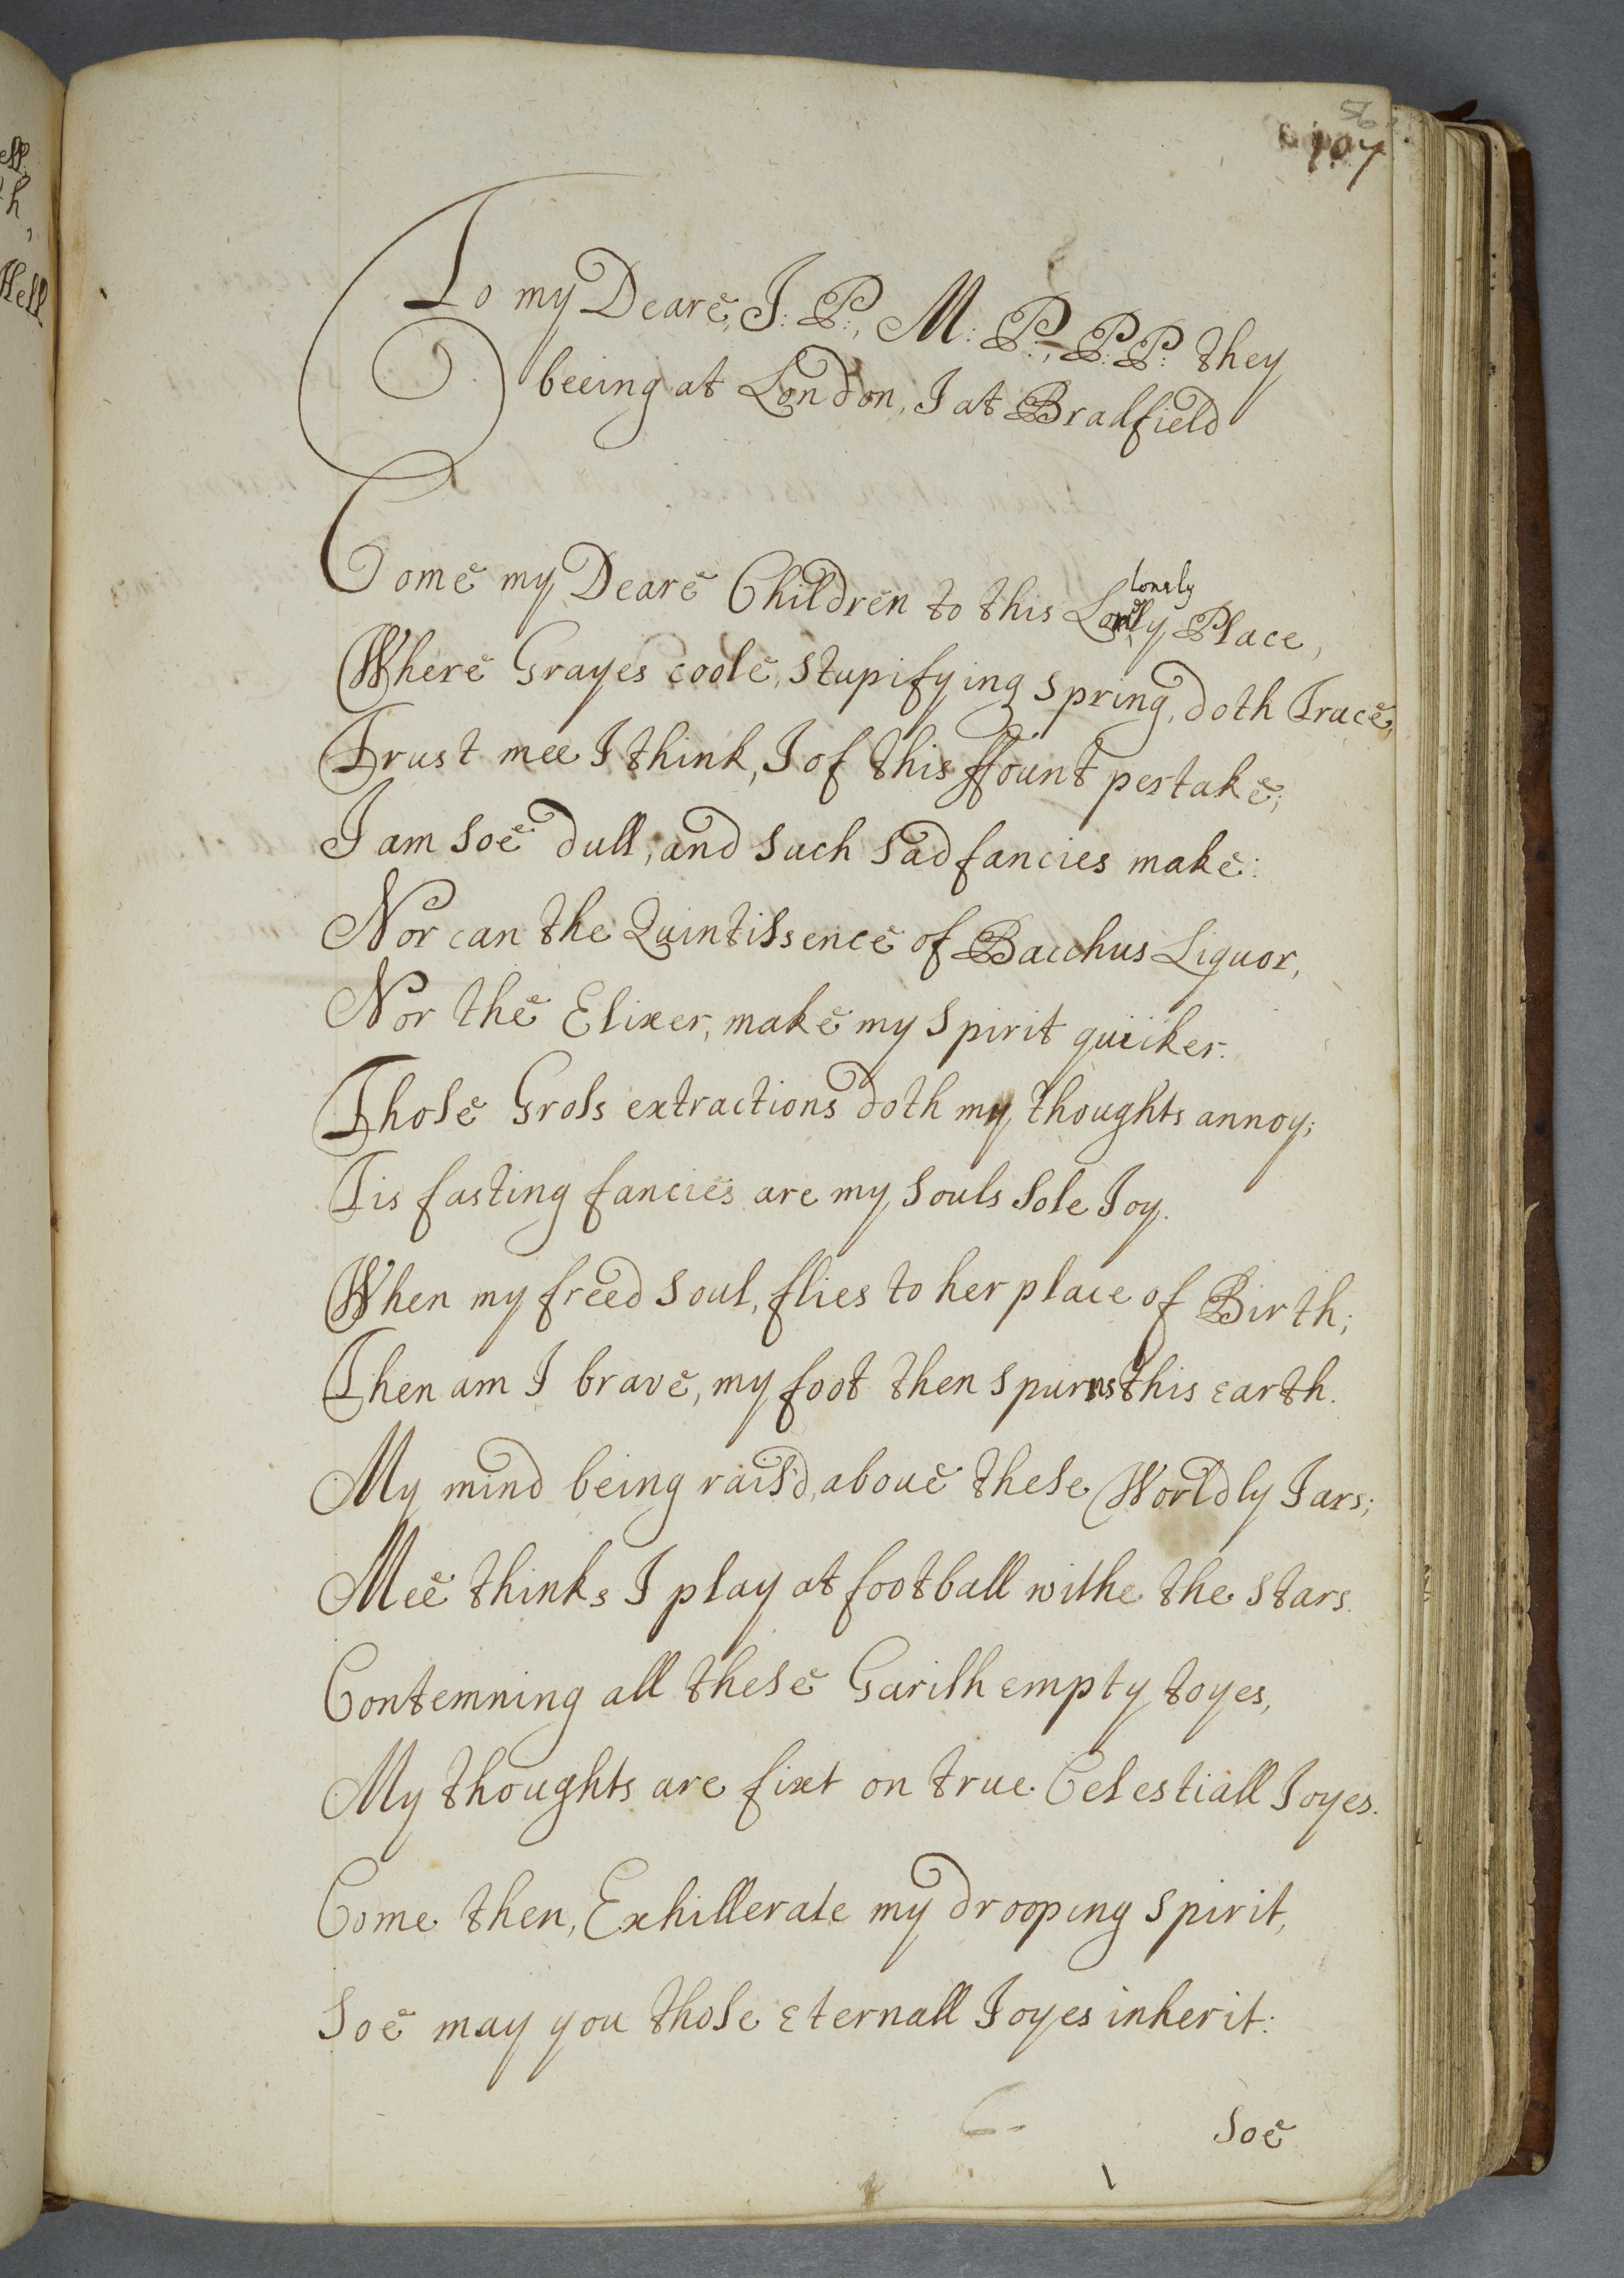 ell
h
Hell
56
107
To my Deare, J: P:, M: P:, P: P: they
beeing at London, I at Bradfield
Come my Deare Children to this Lonely Place,
lonely
Where Grayes coole, stupifying spring, doth Trace,
Trust mee I think, I of this ffount pertake;
I am soe dull, and such sad fancies make:
Nor can the Quintissence of Bacchus Liquor,
Nor the Elixer, make my spirit quicker.
Those Gross extractions doth my thoughts annoy;
Tis fasting fancies are my souls sole Joy.
When my freed soul, flies to her place of Birth;
Then am I brave, my foot then spurns this earth.
My mind being rais'd, aboue these Worldly Jars;
Mee thinks I play at football withe the stars.
Contemning all these Garish empty toyes,
My thoughts are fixt on true Celestiall Joyes.
Come then, Exhillerate my drooping spirit,
Soe may you those eternall Joyes inherit:
Soe